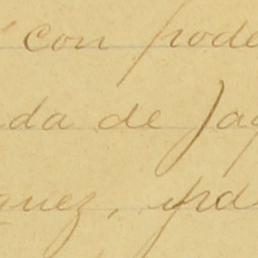 con pode
da de Jaq
quez, pd